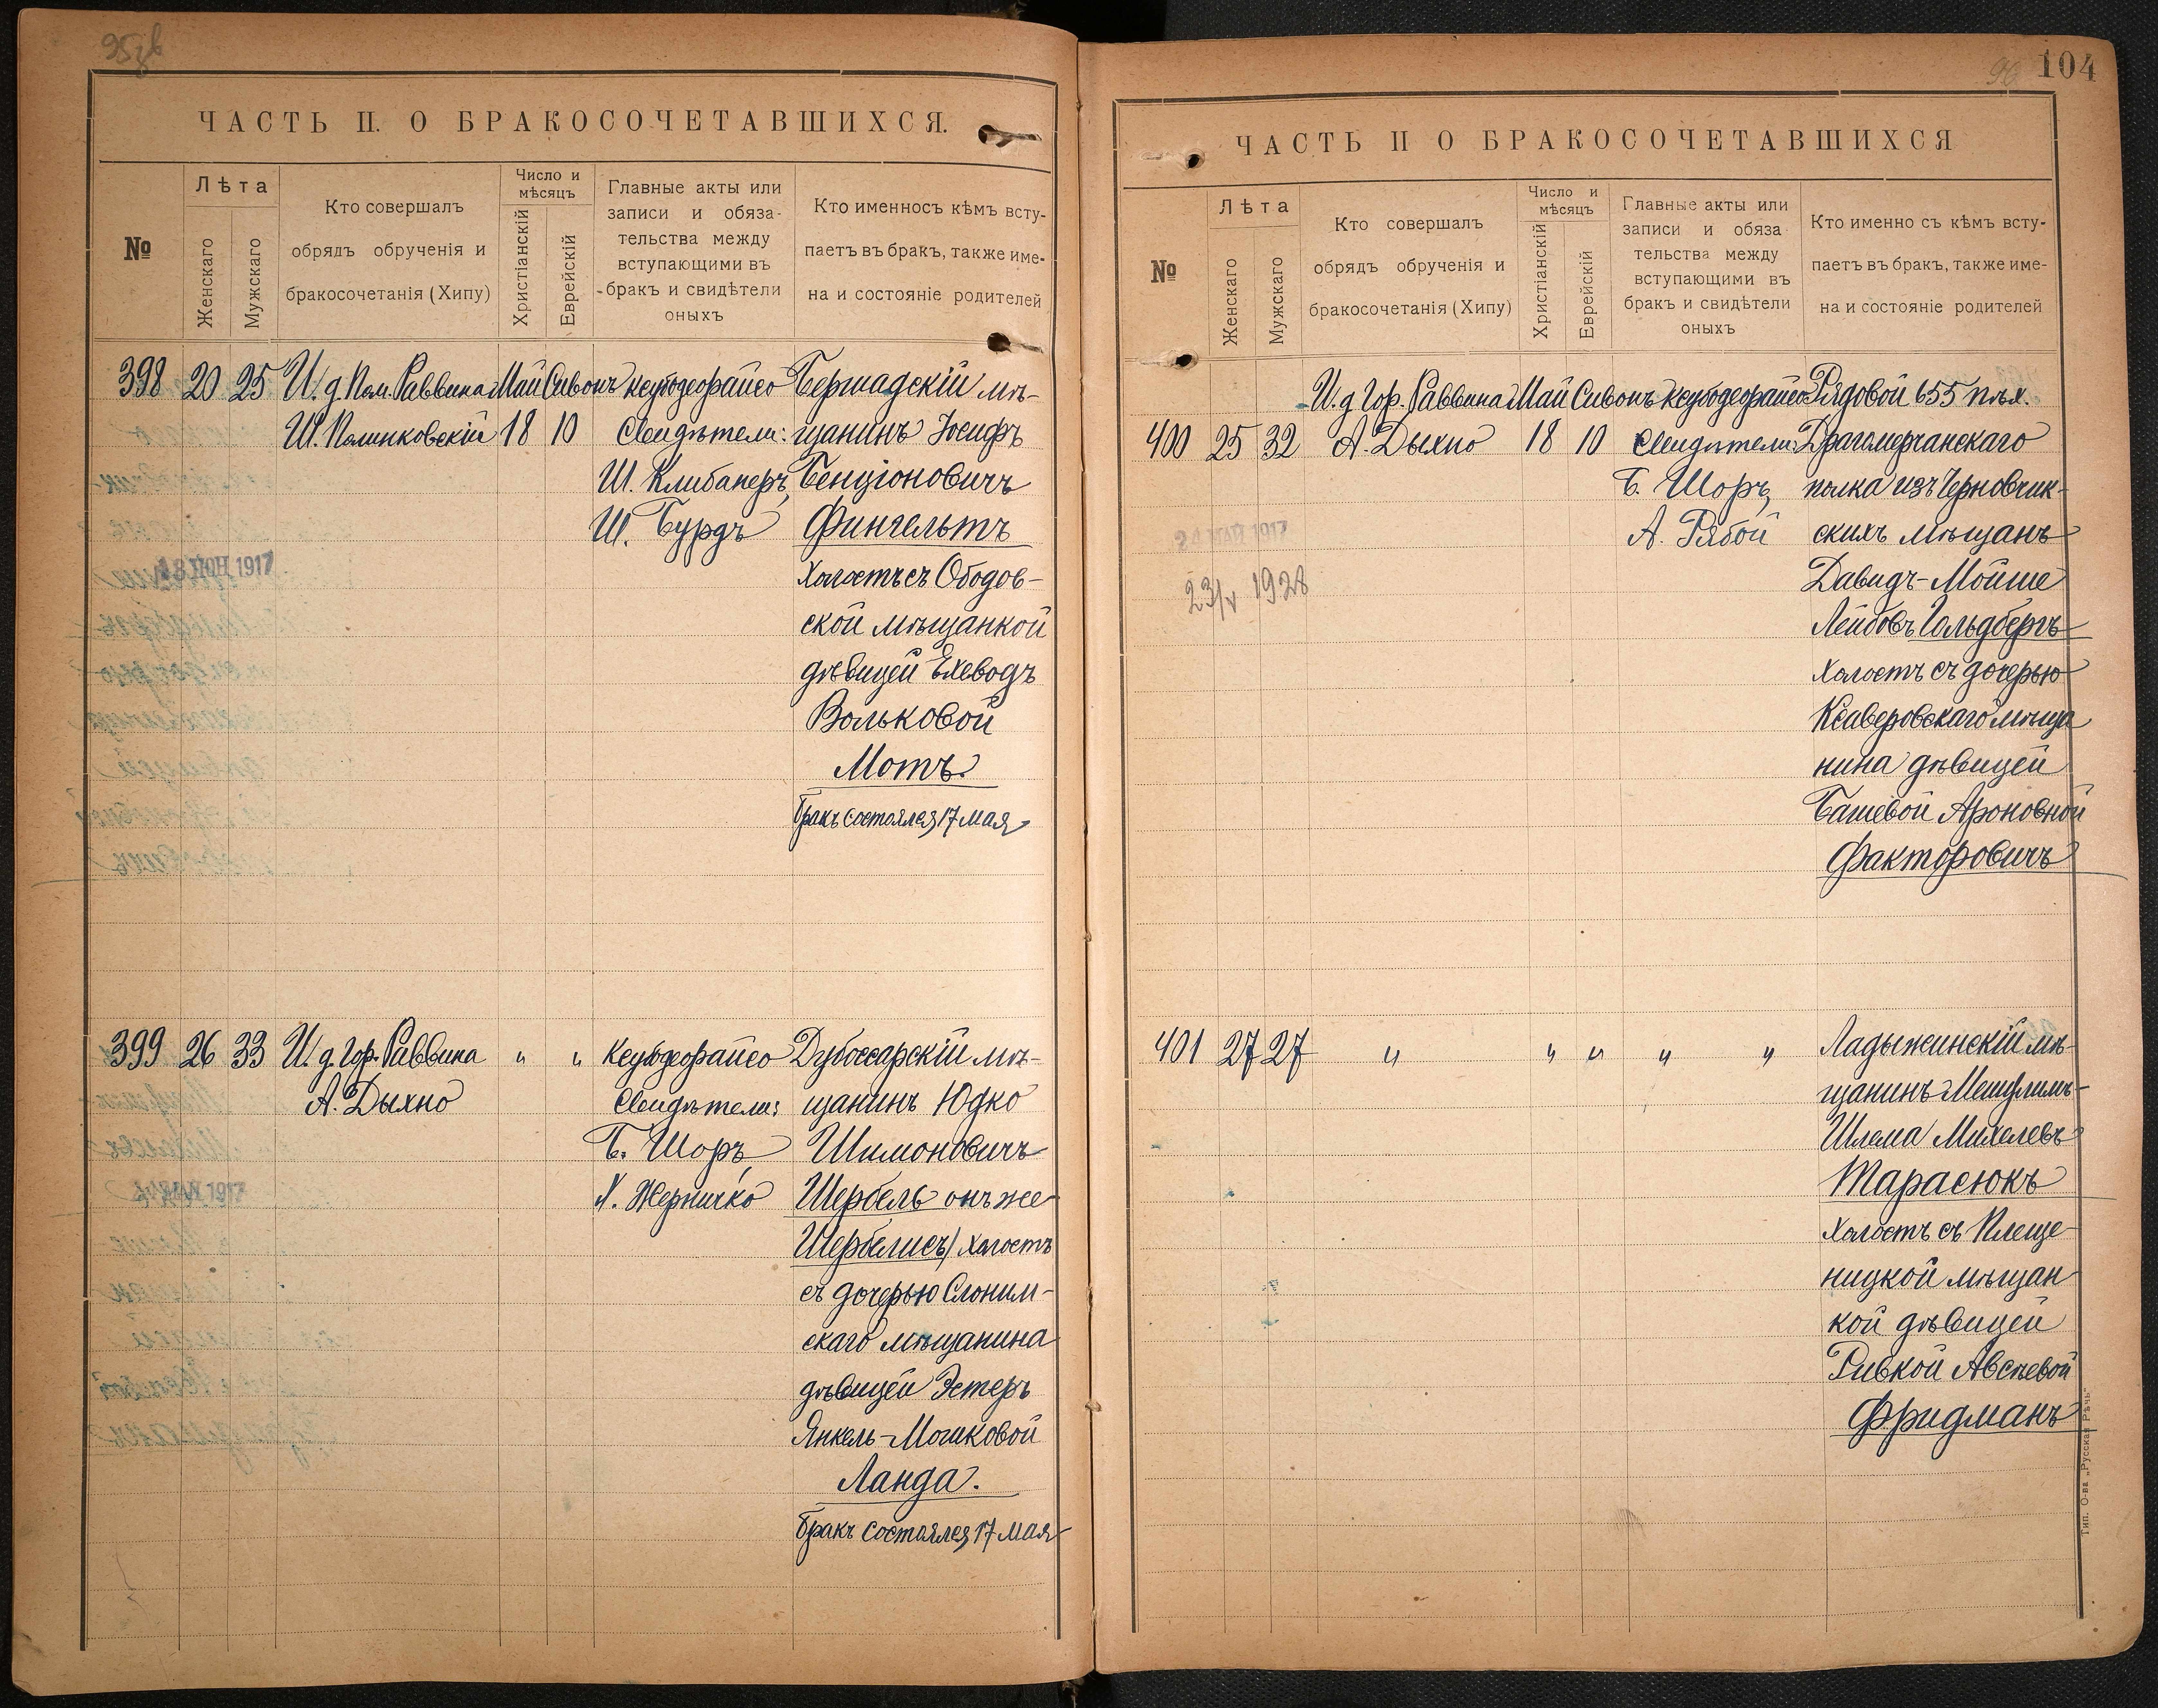 95зв
ЧАСТЬ II. О БРАКОСОЧЕТАВШИХСЯ.
№
Лѣта
Женскаго
Мужскаго
Кто совершалъ
обрядъ обрученія и
бракосочетанія (Хипу)
Число и
мѣсяцъ
Христіанскій
Еврейскій
Главные акты или
записи и обяза-
тельства между
вступающими въ
бракъ и свидѣтели
оныхъ
Кто именносъ кѣмъ всту-
паетъ въ бракъ, также име-
на и состояніе родителей
398 20 25
И. д. Пом. Раввина
Ш. Полинковскій
Май 18
Сивонъ 10
Ксубодеорайсо
Свидѣтели:
Ш. Клибанеръ,
Ш. Бурдъ
Бершадскій мѣ-
щанинъ Іосифъ
Бенціоновичъ
Фингельтъ
Холостъ съ Ободов-
ской мѣщанкой
дѣвицей Ехеводъ
Вольковой
Мотъ.
Бракъ состоялся 17 мая
13 ІЮН 1917
399 26 33
И. д. Гор. Раввина
А. Дыхно
" "
Ксубодеорайсо
Свидѣтели:
Б. Шоръ,
Х. Жерничко
Дубоссарскій мѣ-
щанинъ Юдко
Шимоновичъ
Шербель онъ же
Шербелисъ/ холостъ
съ дочерью Слоним-
скаго мѣщанина
дѣвицей Эстеръ
Янкель-Мошковой
Ланда.
Бракъ состоялся 17 мая
МАЙ 1917
96 104
ЧАСТЬ II О БРАКОСОЧЕТАВШИХСЯ
№
Лѣта
Женскаго
Мужскаго
Кто совершалъ
обрядъ обрученія и
бракосочетанія (Хипу)
Число и
мѣсяцъ
Христіанскій
Еврейскій
Главные акты или
записи и обяза
тельства между
вступающими въ
бракъ и свидѣтели
оныхъ
Кто именно съ кѣмъ всту-
паетъ въ бракъ, также име-
на и состояніе родителей
400 25 32
И. д Гор. Раввина
А. Дыхно
Май 18
Сивонъ 10
Ксубодеорайсо
Свидѣтели:
Б. Шоръ,
А. Рябой
Рядовой 655 пѣх.
Драгомерчанскаго
полка изъ Черновчик-
скихъ мѣщанъ
Давидъ-Мойше
Лейбовъ Гольдбергъ
Холостъ съ дочерью
Ксаверовскаго мѣща
нина дѣвицей
Башевой Ароновной
Факторовичъ
24 МАЙ 1917
23/V 1928
401 27 27
" " " " "
Ладыжинскій мѣ-
щанинъ Мешулимъ-
Шлема Михелевъ
Тарасюкъ
Холостъ съ Плеще-
ницкой мѣщан-
кой дѣвицей
Ривкой Авсѣевой
Фридманъ
Тип. О-ва „Русская Рѣчь"